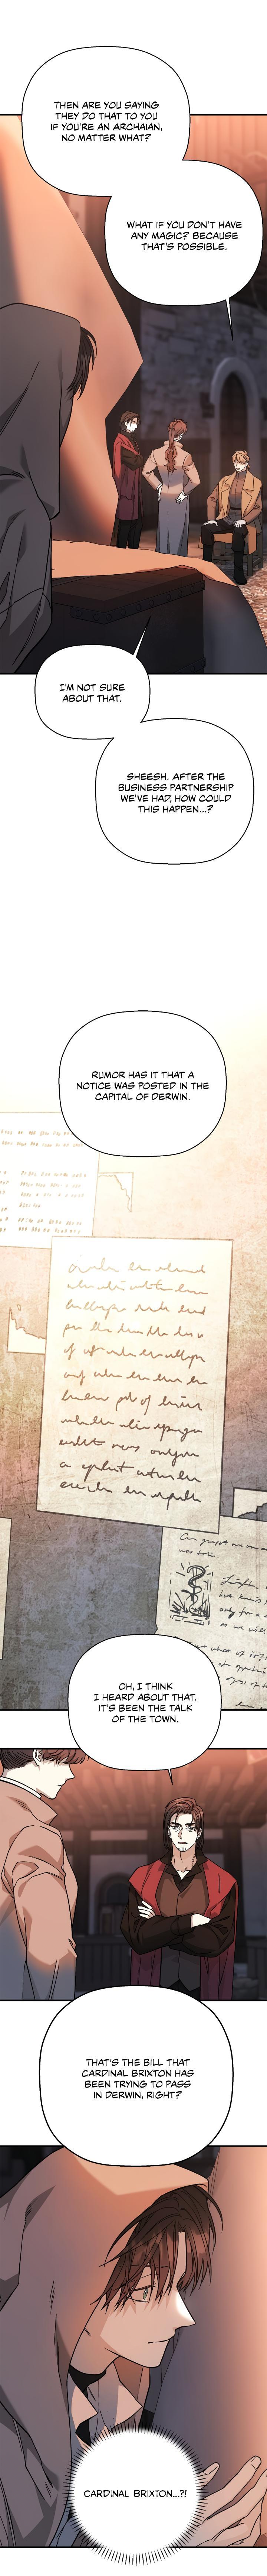 THEN ARE YOU SAYING
THEY DO THAT TO YOU
IF YOU'RE AN ARCHAIAN,
NO MATTER WHAT?
WHAT IF YOU DON'T HAVE
ANY MAGIC? BECAUSE
THAT'S POSSIBLE.
I'M NOT SURE
ABOUT THAT.
SHEESH. AFTER THE
BUSINESS PARTNERSHIP
WE'VE HAD, HOW COULD
THIS HAPPEN...?
RUMOR HAS IT THAT A
NOTICE WAS POSTED IN THE
CAPITAL OF DERWIN.
OH, I THINK
I HEARD ABOUT THAT.
IT'S BEEN THE TALK
OF THE TOWN.
THAT'S THE BILL THAT
CARDINAL BRIXTON HAS
BEEN TRYING TO PASS
IN DERWIN, RIGHT?
CARDINAL BRIXTON...?!